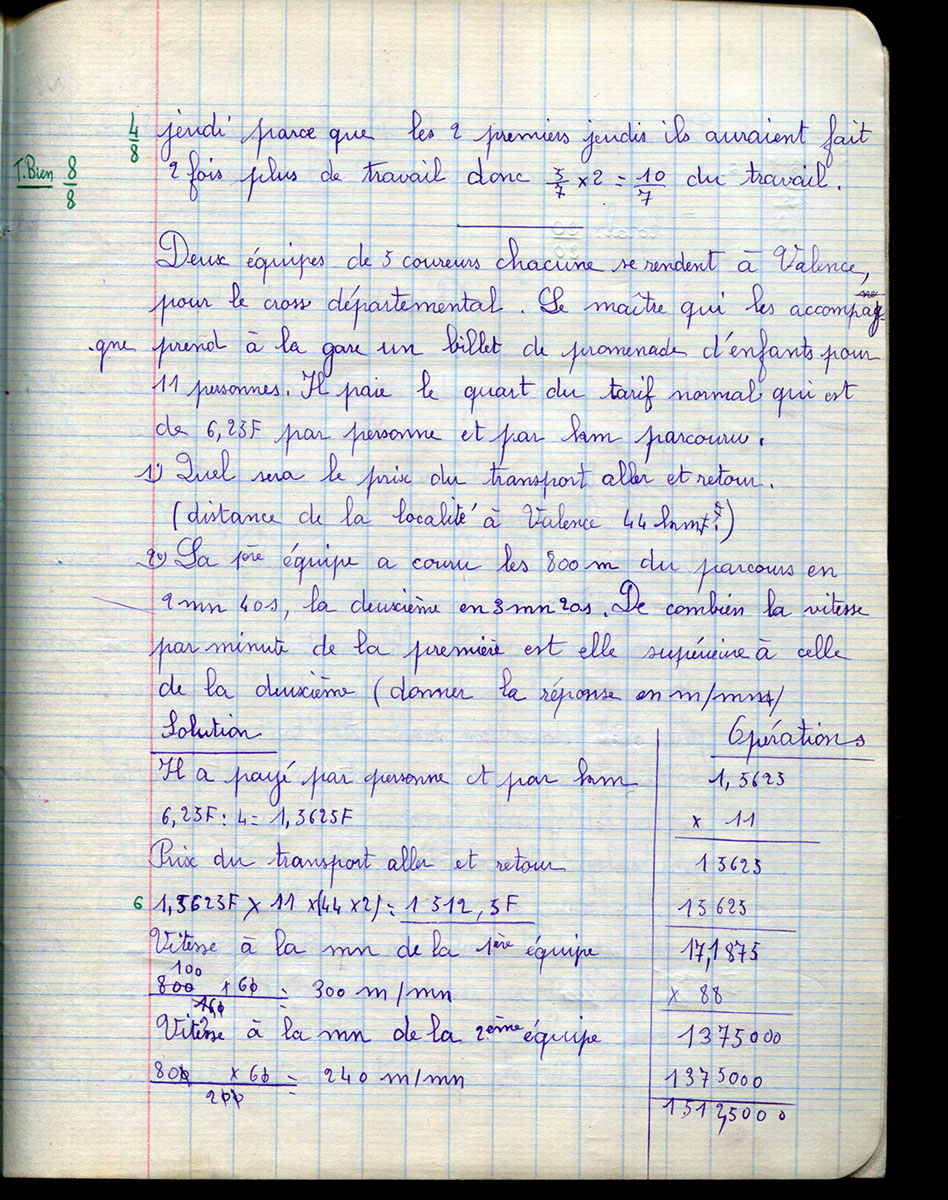 4/8 jeudi parce que les 2 premiers jeudis ils auraient fait
T.Bien 8/8 2 fois plus de travail donc 5/7 x 2 = 10/7 du travail.
Deux équipes de 5 coureurs chacune se rendent à Valence,
pour le cross départemental. Le maître qui les accompa
gne prend à la gare un billet de promenade d'enfants pour
11 personnes. Il paie le quart du tarif normal qui est
de 6,25F par personne et par km parcouru.
1) Quel sera le prix du transport aller et retour.
(distance de la localité à Valence 44 km)
2) La 1ère équipe a couru les 800 m du parcours en
2 mn 40s, la deuxième en 3 mn 20s. De combien la vitesse
par minute de la première est elle supérieure à celle
de la deuxième (donner la réponse en m/mn)
Solution
Il a payé par personne et par km
6,25F : 4 = 1,5625F
Prix du transport aller et retour
6 1,5625F x 11 x (44 x 2) = 1 512,5F
Vitesse à la mn de la 1ère équipe
100
800 x 60 = 300 m/mn
160
Vitesse à la mn de la 2ème équipe
800 x 60 = 240 m/mn
200
Opérations
1,5625
x 11
15625
15625
17,1875
x 88
1375000
1375000
1512,5000